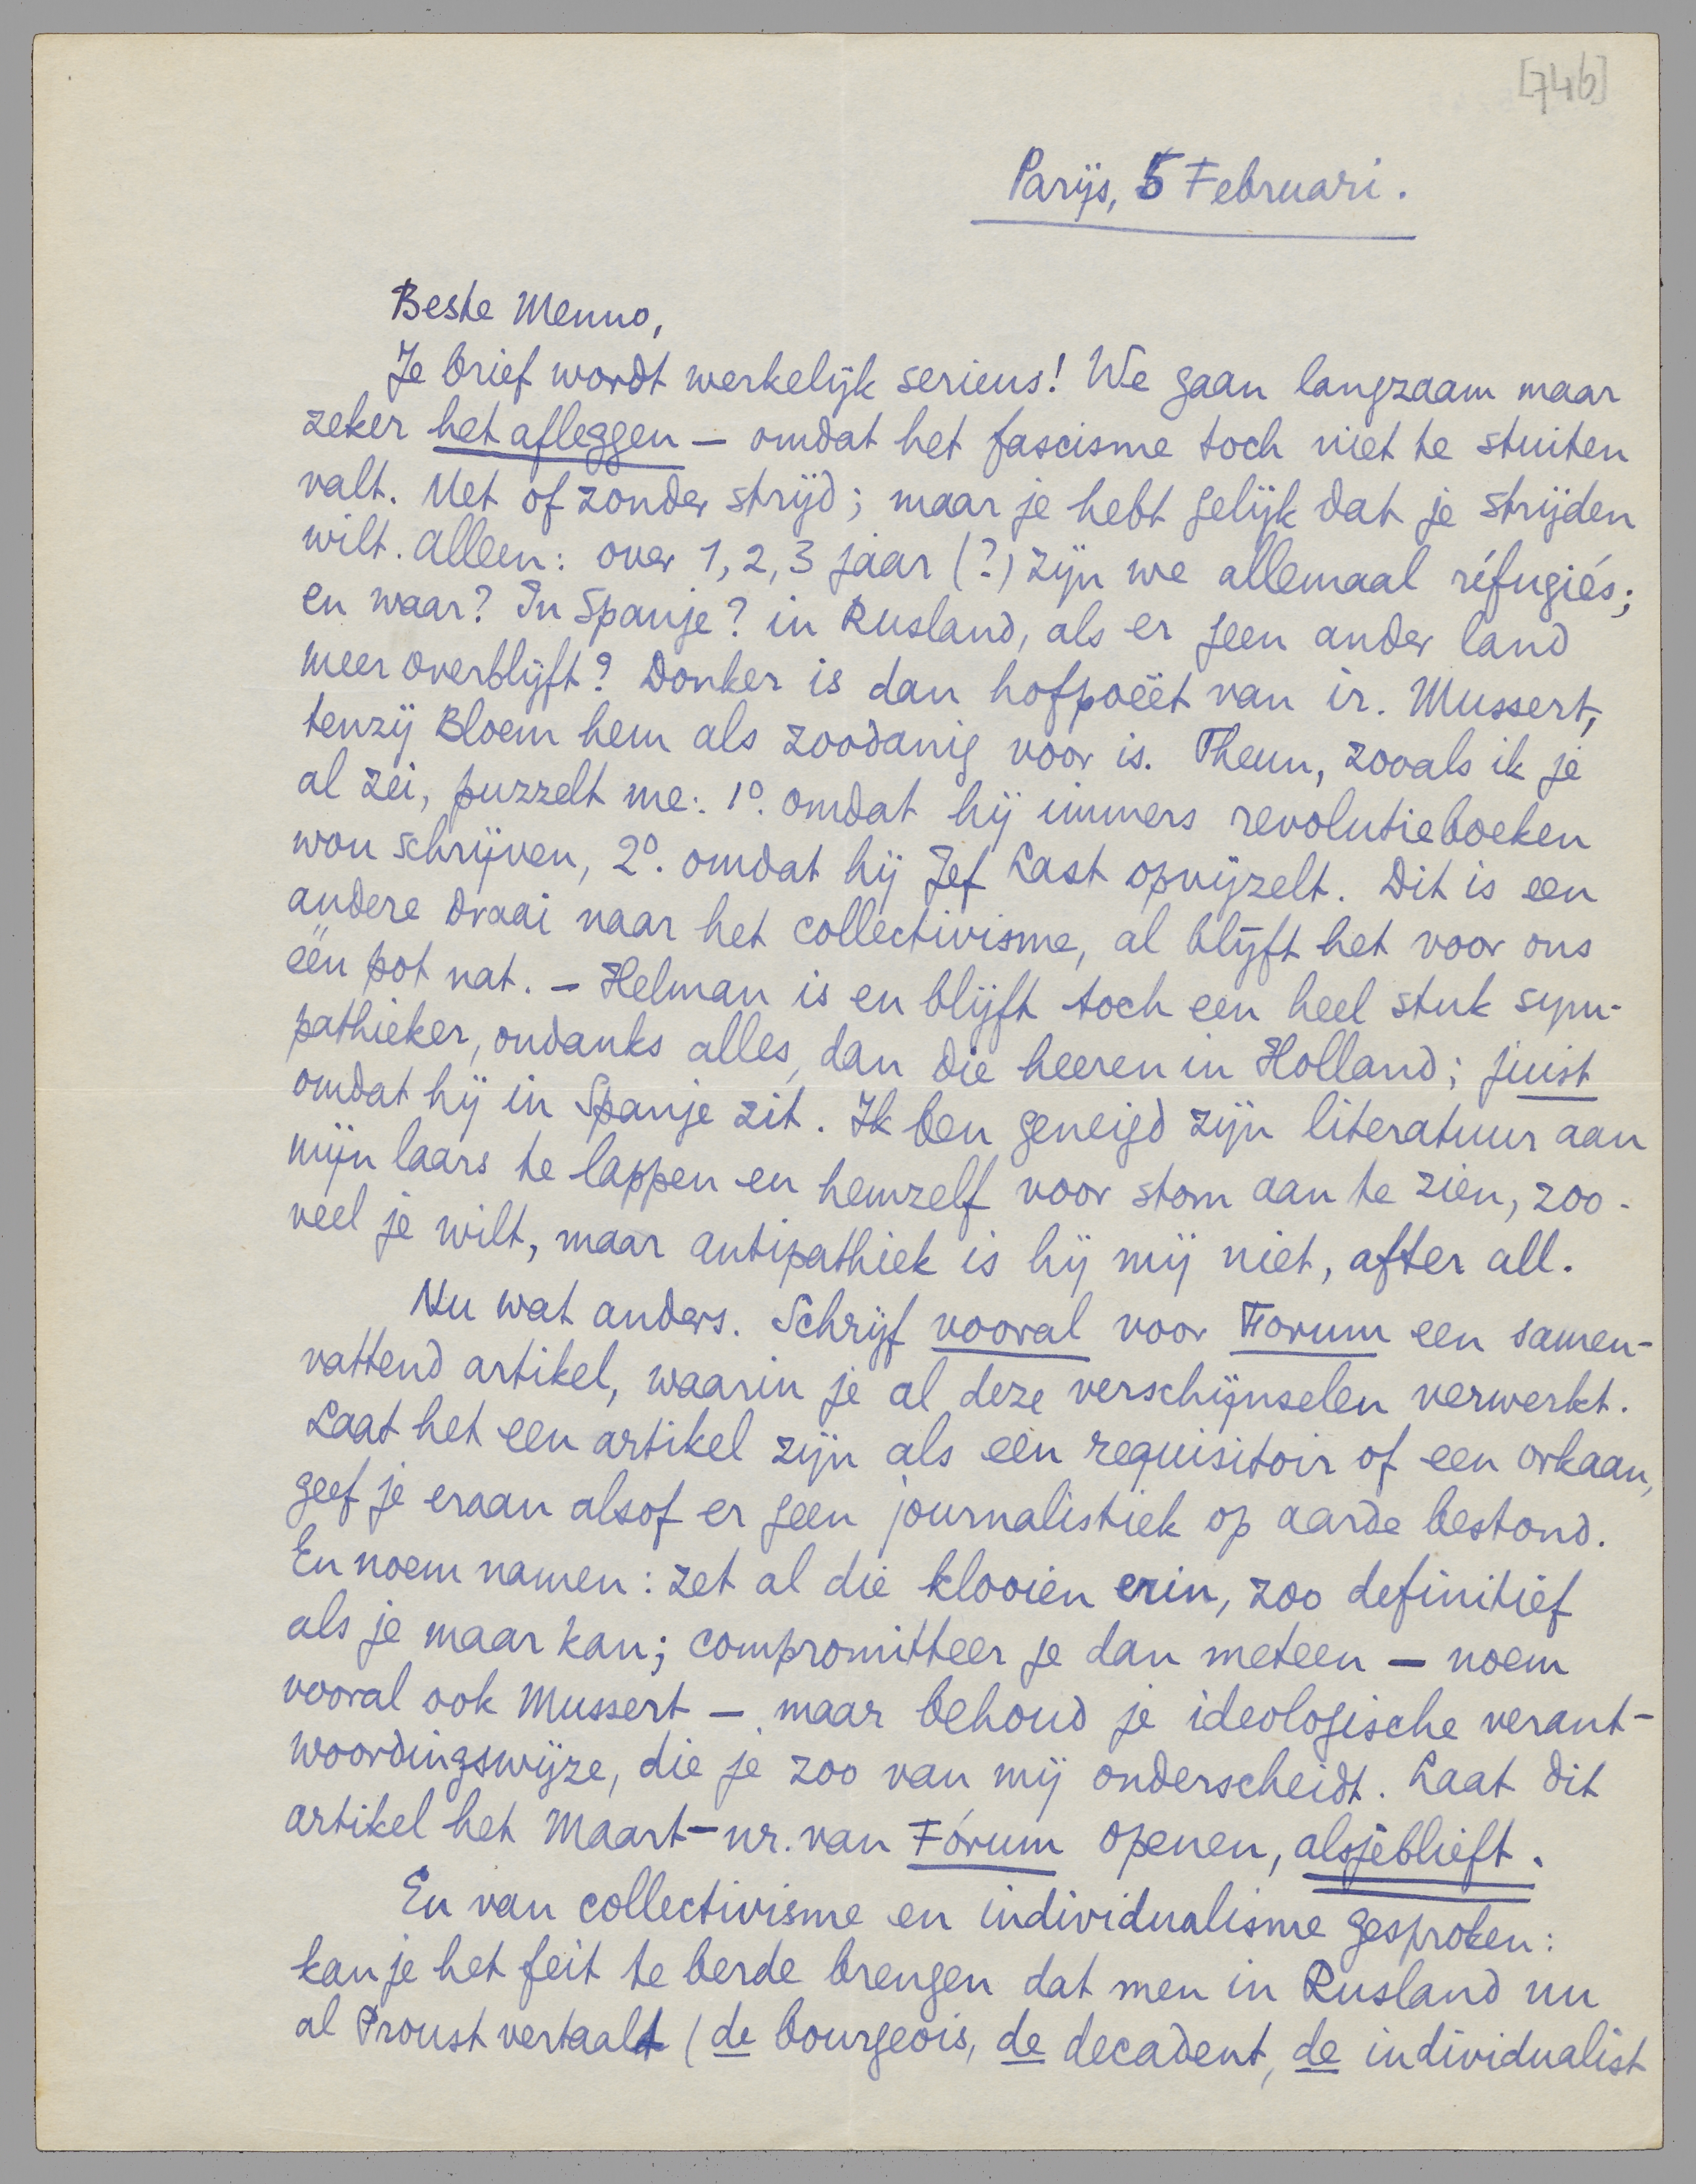 [746]
Parijs, 5 Februari.
Beste Menno,
Je brief wordt werkelijk serieus! We gaan langzaam maar
zeker het afleggen — omdat het fascisme toch niet te stuiten
valt. Met of zonder strijd; maar je hebt gelijk dat je strijden
wilt. Alleen: over 1, 2, 3 jaar (?) zijn we allemaal réfugiés;
en waar? In Spanje? in Rusland, als er geen ander land
meer overblijft? Donker is dan hofpoëet van ir. Mussert,
tenzij Bloem hem als zoodanig voor is. Theun, zooals ik je
al zei, puzzelt me: 1º. omdat hij immers revolutieboeken
wou schrijven, 2º. omdat hij Jef Last opvijzelt. Dit is een
andere draai naar het collectivisme, al blijft het voor ons
één pot nat. — Helman is en blijft toch een heel stuk sym-
pathieker, ondanks alles, dan die heeren in Holland; juist
omdat hij in Spanje zit. Ik ben geneigd zijn literatuur aan
mijn laars te lappen en hemzelf voor stom aan te zien, zoo-
veel je wilt, maar antipathiek is hij mij niet, after all.
Nu wat anders. Schrijf vooral voor Forum een samen-
vattend artikel, waarin je al deze verschijnselen verwerkt.
Laat het een artikel zijn als een requisitoir of een orkaan,
geef je eraan alsof er geen journalistiek op aarde bestond.
En noem namen: zet al die klooien erin, zoo definitief
als je maar kan; compromitteer je dan meteen — noem
vooral ook Mussert — maar behoud je ideologische verant-
woordingswijze, die je zoo van mij onderscheidt. Laat dit
artikel het Maart-nr. van Forum openen, alsjeblieft.
En van collectivisme en individualisme gesproken:
kan je het feit te berde brengen dat men in Rusland nu
al Proust vertaalt (de bourgeois, de decadent, de individualist